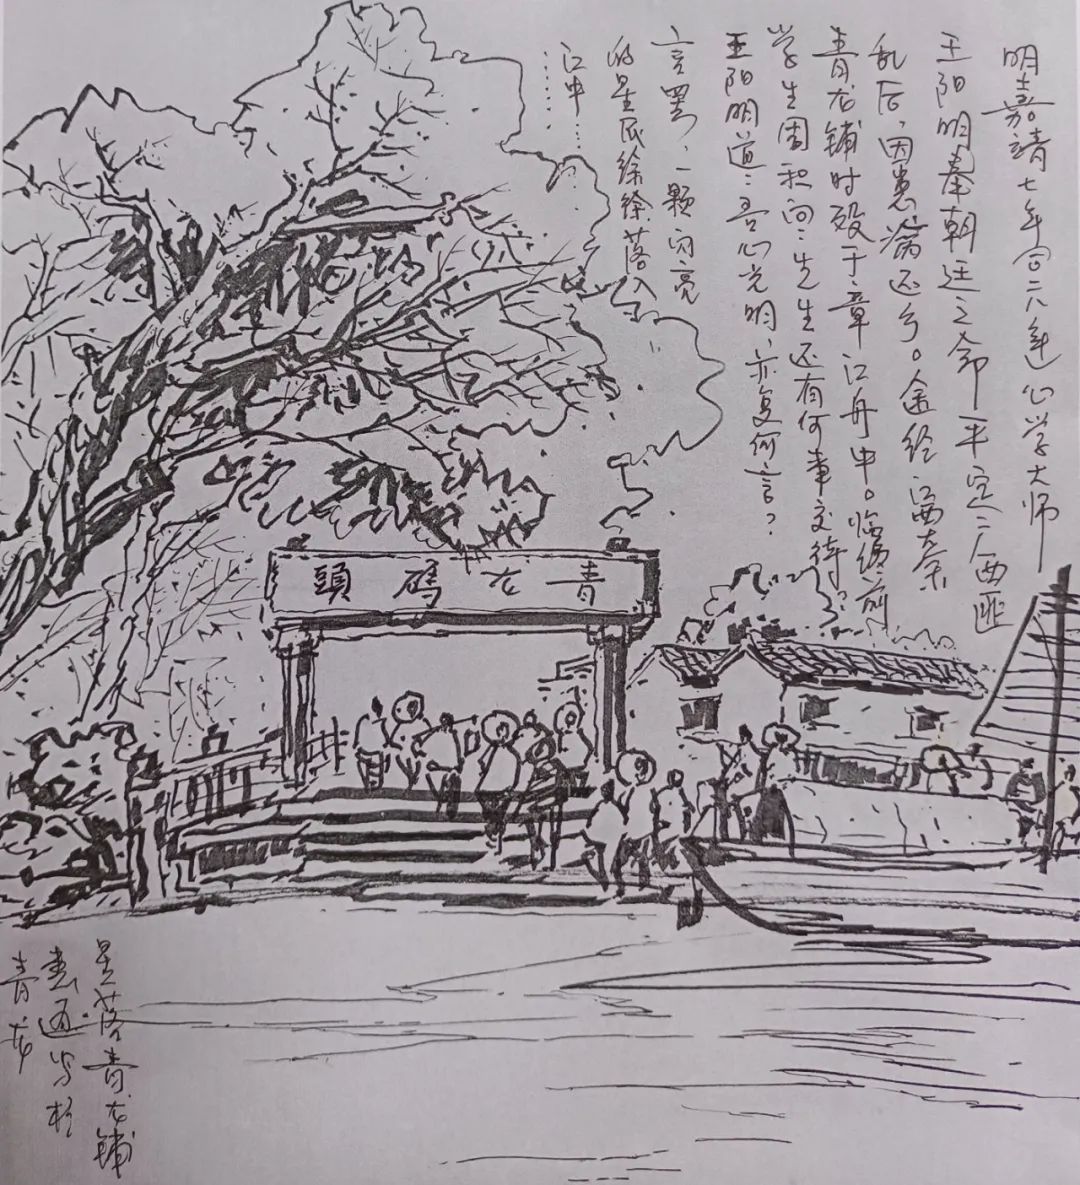 明嘉靖七年心学大师
王阳明奉朝廷之命平定广西匪
乱后,因患病还乡。途经江西大余
青龙铺时殁于章江舟中。临终前
学生周积问:先生还有何事交待?
王阳明道:吾心光明,亦复何言?
言罢,一颗闪亮
的星辰徐徐落入
江中……
青龙碼頭
星落青龙铺
写於
青龙